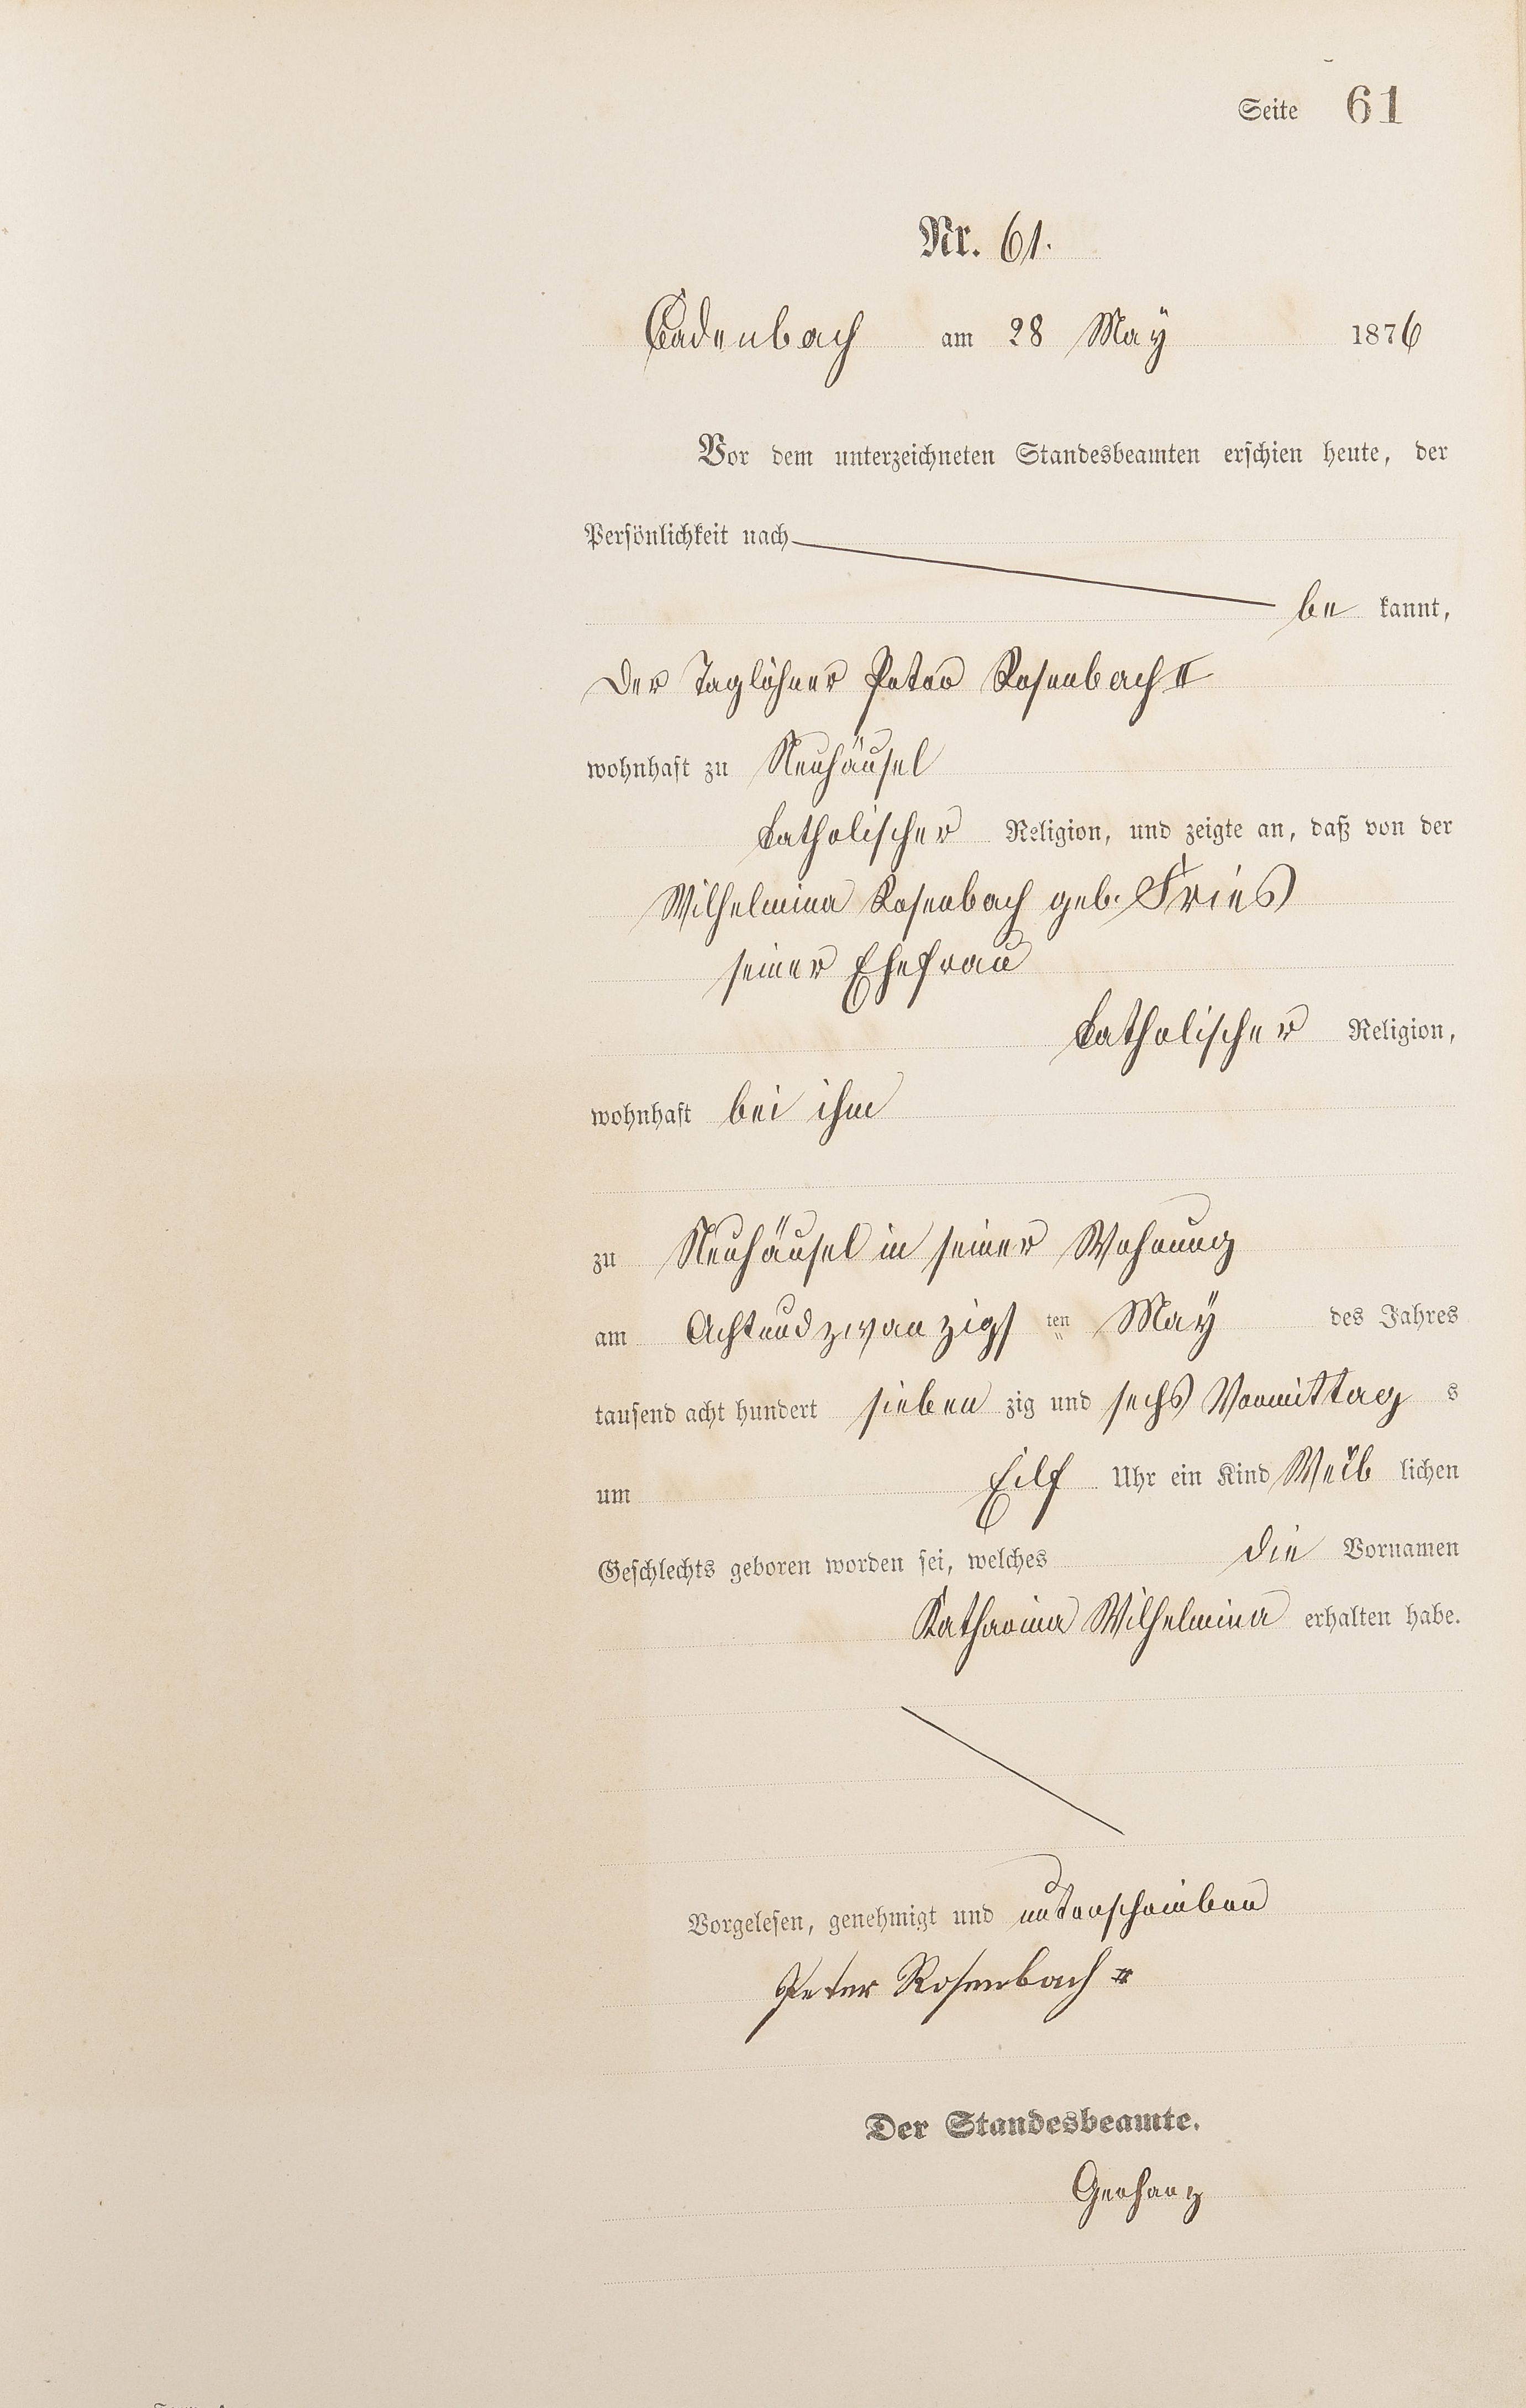 Seite 61
Nr. 61.
Cadenbach am 28 May 1876
Vor dem unterzeichneten Standesbeamten erschien heute, der
Persönlichkeit nach
be kannt,
Der Taglöhner Peter Rosenbach II
wohnhaft zu Neuhäusel
katholischer Religion, und zeigte an, daß von der
Wilhelmina Rosenbach geb. Fries
seiner Ehefrau
katholischer Religion,
wohnhaft bei ihm
zu Neuhäusel in seiner Wohnung
am Achtundzwanzigs ten May des Jahres
tausend acht hundert sieben zig und sechs Vormittag s
um Eilf Uhr ein Kind Weib lichen
Geschlechts geboren worden sei, welches die Vornamen
Katharina Wilhelmina erhalten habe.
Vorgelesen, genehmigt und unterschrieben
Peter Rosenbach II
Der Standesbeamte.
Gerhanz